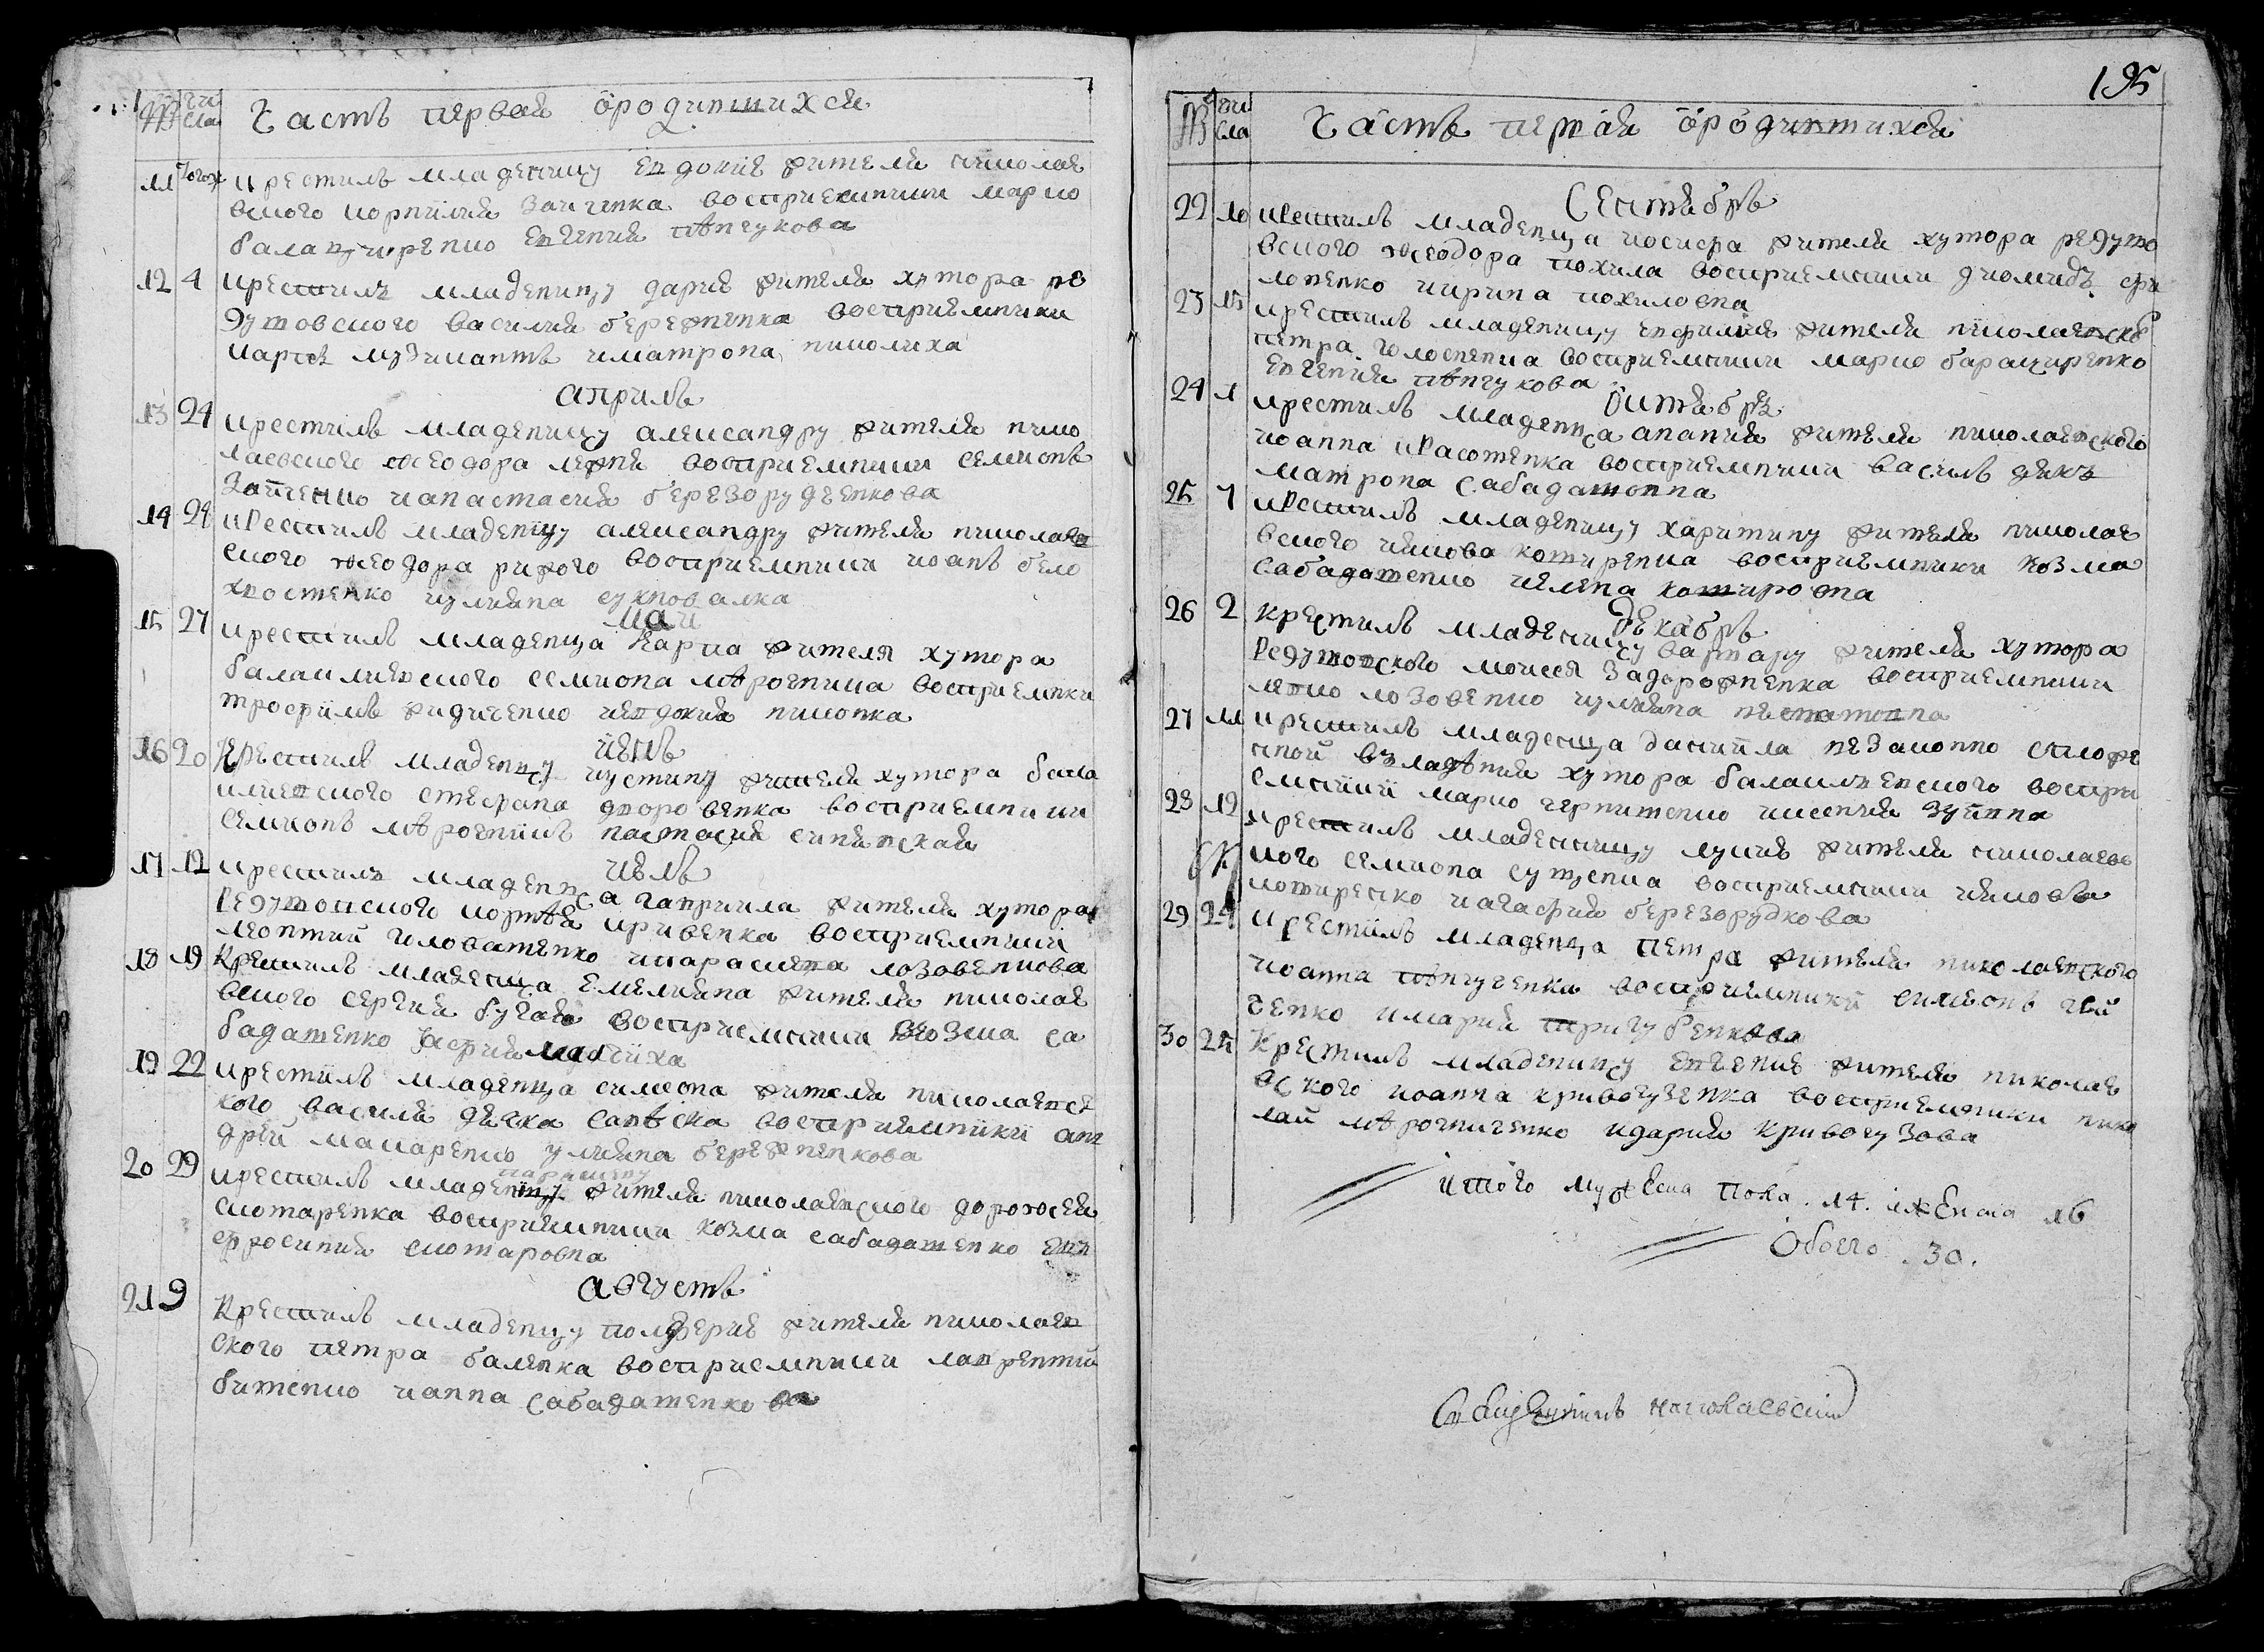 № числа Часть первая ородившихся
11 Тогож крестилъ младеницу евдокию жителя николае
вского корнилия заиченка восприемники марко
балацкиренко евгения пѣнчукова
12 4 крестилъ младеницу дарию жителя хутора ре
дутовского василия бережненка восприемники
карпъ музикантъ иматрона николиха
априль
13 24 крестилъ младеницу александру жителя нико
лаевского ѳеодора лежня восприемники семионъ
ианастасия березоруденкова
14 24 крестилъ младеницу александру жителя николаев
ского ѳеодора рижого восприемники иоанъ бело
хвостенко иулияна сукновалка
маи
15 27 крестилъ младенца карпа жителя хутора
балаклиевского семиона мѣрочника восприемники
трофимъ жидиченко иевдокия никонка
июнь
16 20 Крестилъ младеницу иустину жителя хутора бала
клиевского стефана дворовенка восприемники
семионъ мѣрочникъ настасия синявская
июль
17 12 крестилъ младенца гавриила жителя хутора
редутовского корнѣя кривенка восприемники
леонтий головатенко ипараскева лозовенкова
18 19 Крестилъ младенца емелияна жителя николае
вского сергия бугая восприемники козма са
бадатенко
19 22 крестилъ младенца симеона жителя николаевс
кого василя дячка восприемники анд
дрей макаренко улияна бережненкова
20 29 крестилъ младеницу жителя николаевского дорофея
слютаренка восприемники козма сабадатенко
ефросиния слютаровна
августъ
21 9 Крестилъ младеницу полиферию жителя николаев
ского петра баленка восприемники лаврентий
битенко ианна сабадатенкова
195
№ числа Часть первая ородившихся
Сентябрь
22 10 крестилъ младенца иосифа жителя хутора редуто
вского ѳеодора похила восприемники диомидъ фи
лоненко иирина похиловна
23 15 крестилъ младеницу евфимию жителя николаевско
петра голосненка восприемники марко барацкиренко
евгения пѣнчукова
Октябрь
24 1 крестилъ младенца анания жителя николаевского
иоанна красотенка восприемники василь дякъ
матрона сабадатовна
25 7 крестилъ младеницу харитину жителя николае
вского иякова котиренка восприемники козма
сабадатенко иелена котировна
декабрь
26 2 крестилъ младеницу варвару жителя хутора
редутовского моисея задорожненка восприемники
левко лозовенко иулияна
27 11 крестилъ младенца даниила незаконно
ной владѣния хутора балаклиевского воспри
емники марко чернитенко иксения зуивна
28 19 крестилъ младеницу лукию жителя николаевс
кого семиона сущенка восприемники ияковъ
котиренко иагафия березорудкова
29 24 крестилъ младенца петра жителя николаевского
иоанна пѣнчученка восприемники симеонъ
ченко имария тригубенкова
30 25 Крестилъ младеницу евгению жителя николае
вского иоанна кривогузенка восприемники нико
лай мѣрочниченко идария кривогузова
итого мужеска пола .14. иженска 16
обоего .30.
Священникъ николаевский